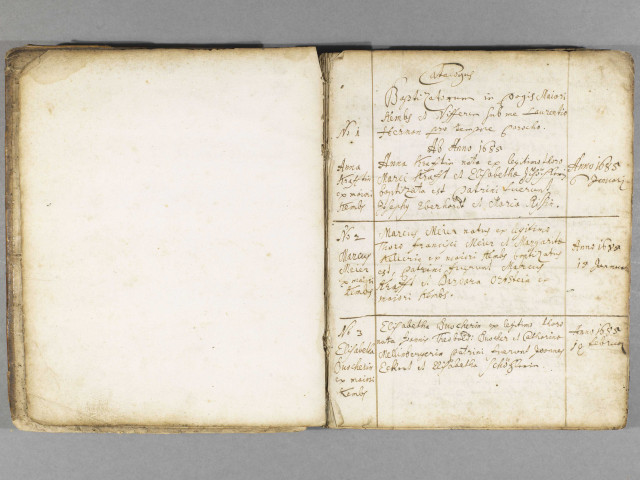 Catalogus
Baptizatorum in pagis Maiori
Kembs et Niffern sub me Laurentio
Herman pro tempore parocho.
Ab Anno 1685
No 1
Anna
ex maiori
Kembs
Anna nata ex legitimo thoro
Marci Krafft et Elisabetha
baptizata est patrini fuerunt
Josephg Eberhardt et Maria
Anno 1685
Januarij
No 2
Marcus
Meier
ex maiori
Kembs
Marcus Meier natus ex legitimo
thoro Francisci Meier et Margarita
ex maiori Kembs baptizatus
est, patrini fuerunt Marcus
Krafft et Barbara ex
maiori Kembs.
Anno 1685
18 Januar
No 3
Elisabetha
Buecherin
ex maiori
Kembs
Elisabetha Buecherin ex legitimo thoro
nata Buecher et Catharina
patrini fuerunt
et Elisabetha
Ano 1685
Februar